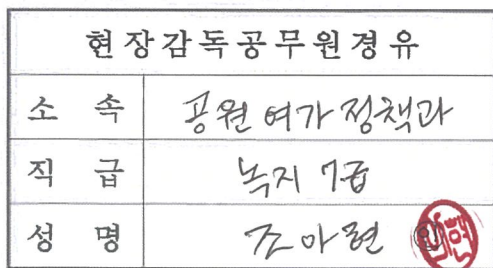 현장감독공무원경유
소 속 공원여가정책과
직 급 녹지 7급
성 명 조아현 ㊞